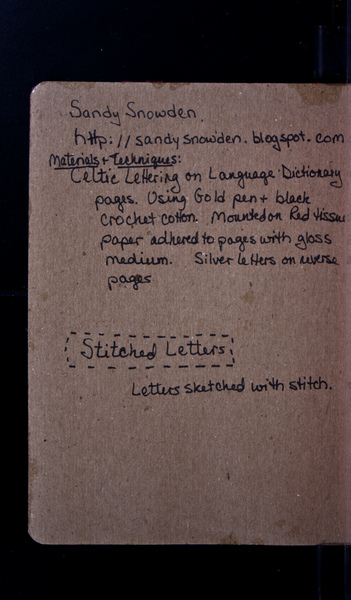 Sandy Snowden.
http://sandysnowden.blogspot.com
Materials + Techniques:
Celtic Lettering on Language: Dictionary
pages. Using Gold pen + black
crochet cotton. Mounted on Red tissue
paper adhered to pages with gloss
medium. Silver letters on reverse
pages
Stitched Letters
Letters sketched with stitch.